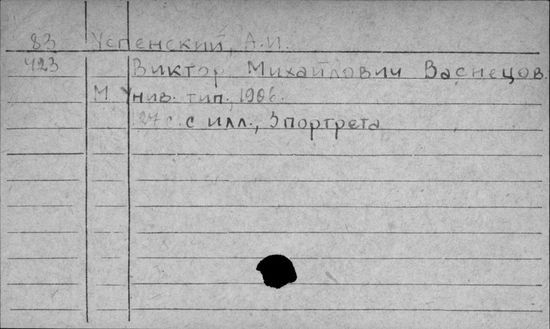 83 Успенский, А.И.
423 Виктор Михайлович Васнецов.
М. Унив. тип., 1906.
27 с. с илл., 3 портрета